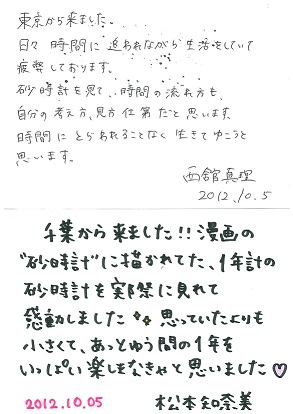 東京から来ました。
日々 時間に 追われながら 生活をしていて
疲弊しております。
砂時計を見て、時間の流れ方も、
自分の考え方、見方 仕第だと思います。
時間に とらわれることなく 生きてゆこうと
思います。
西舘真理
2012.10.5
千葉から来ました!!漫画の
"砂時計"に描かれてた、1年計の
砂時計を実際に見れて
感動しました 思っていたよりも
小さくて、あっとゆう間の1年を
いっぱい楽しまなきゃと思いました♡
2012.10.05 松本知奈美